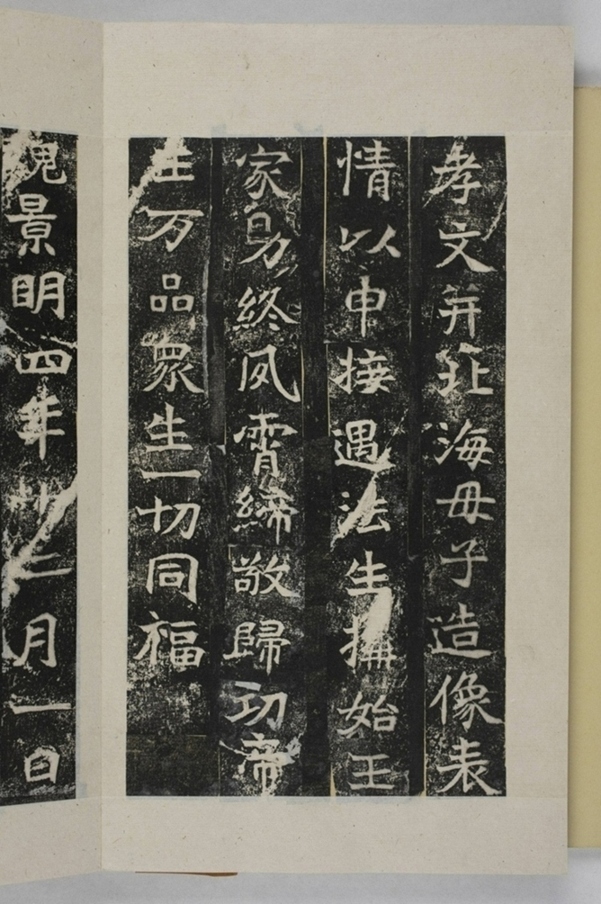 孝文并北海母子造像表
情以申接遇法生構始王
家助終夙霄締敬歸功帝
王万品眾生一切同福
魏景明四年十二月一日